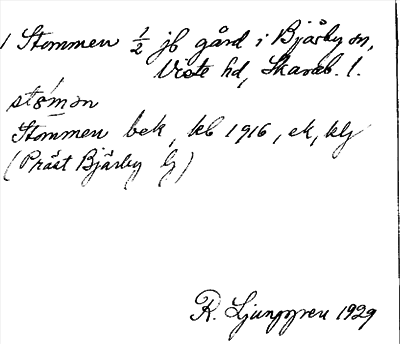 1 Stommen 1/2 jb gård i Bjärby sn,
Viste hd, Skarab. l.
stômǝn
Stommen bek, kb 1916, ek, klj
(Präst Bjärby lj)
R. Ljunggren 1929